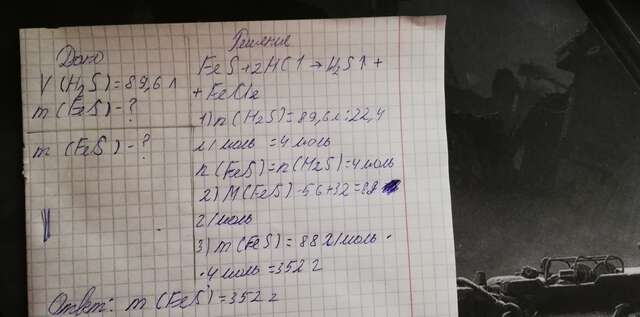 Дано
V (H₂S) = 89,6 л
m (FeS) - ?
m (FeS) - ?
Решение
FeS + 2HCl → H₂S↑ +
+ FeCl₂
1) n(H₂S) = 89,6 л : 22,4
л/моль = 4 моль
n(FeS) = n(H₂S) = 4 моль
2) M(FeS) = 56 + 32 = 88
г/моль
3) m(FeS) = 88 г/моль ·
· 4 моль = 352 г
Ответ: m(FeS) = 352 г